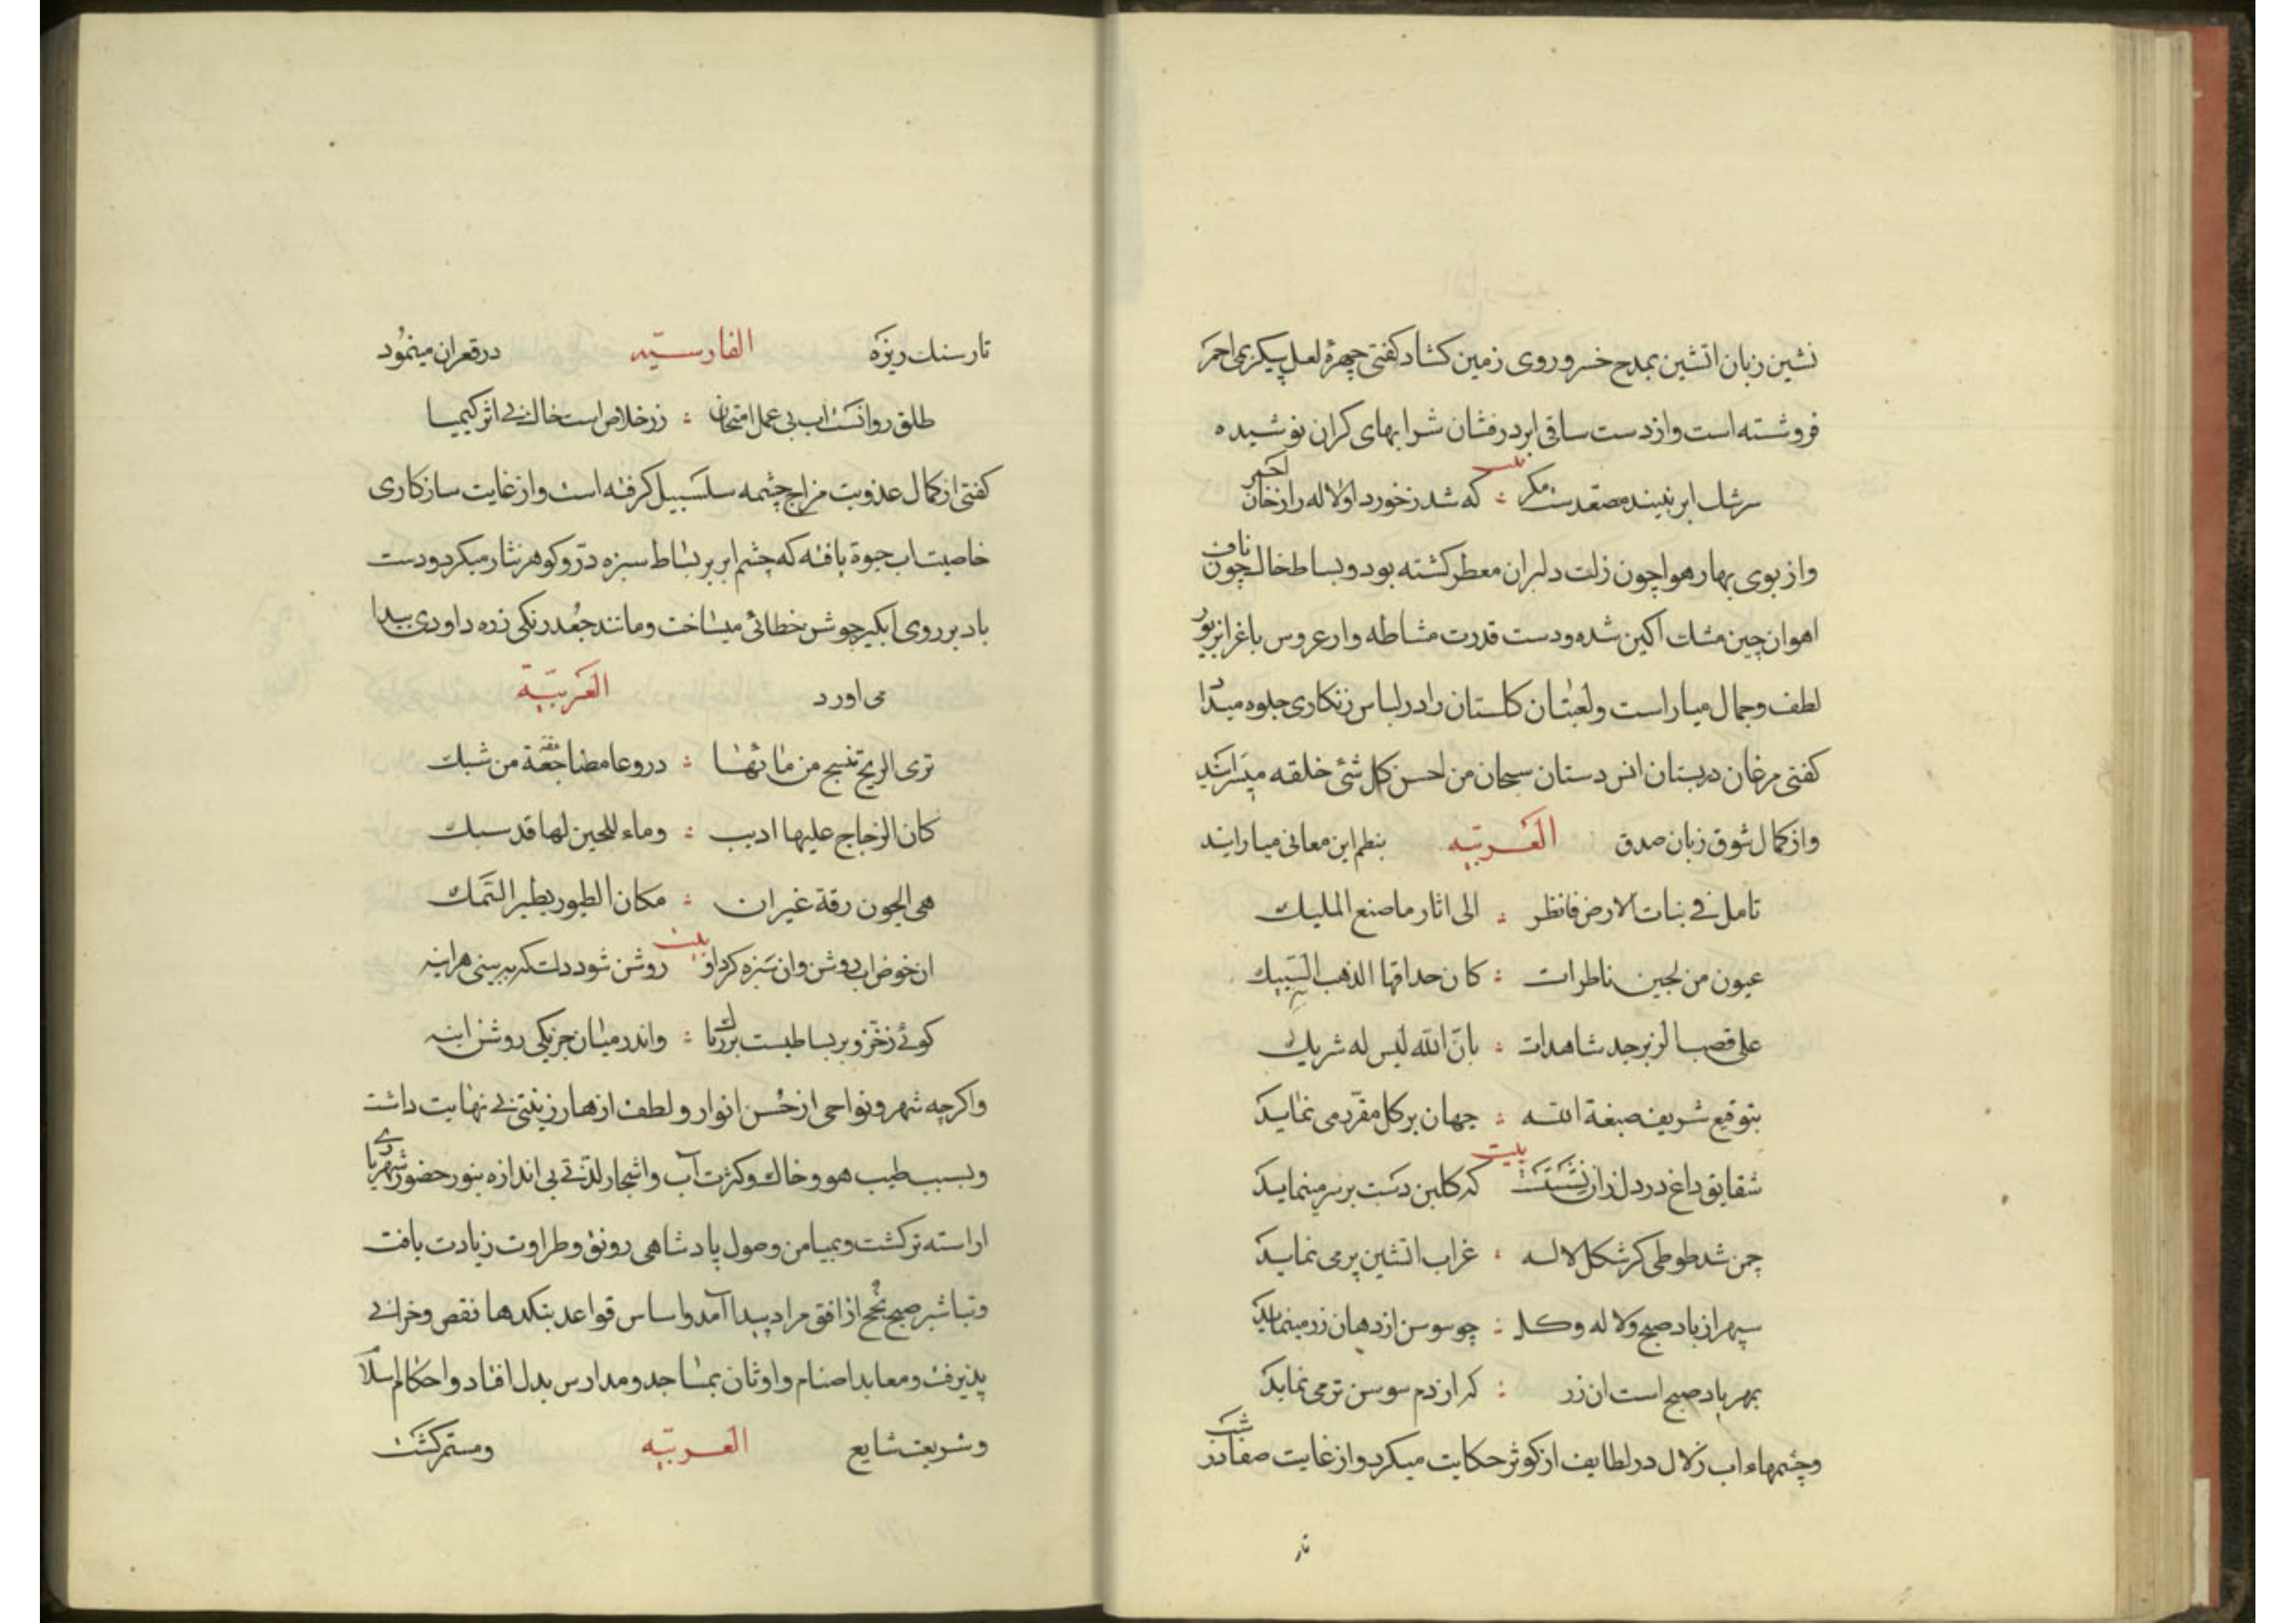 نشین زبان اتشین بمدح خسرو روی زمین کشاد کفتی چهرهٔ لعل پیکر بمی احمر
فروشسته است و از دست ساقی ابر درفشان شرابهای کران نوشیده
بیت
سرشك ابر نبیند مصعدست مکر : که شد ز خورد او لاله را زخان احمر
و از بوی بهار هوا چون زلف دلبران معطر کشته بود و بساط خاك چون ناف
اهوان چین مشك اکین شده و دست قدرت مشاطه وار عروس باغ را بزیور
لطف و جمال میاراست و لعبتان کلستان را در لباس زنکاری جلوه میداد
کفتی مرغان در بستان انس دستان سبحان من احسن کل شئ خلقه میسرایند
و از کمال شوق زبان صدق العربیه بنظم این معانی میارایند
تامل فی نبات الارض فانظر : الی اثار ما صنع الملیك
عیون من لجین ناظرات : کان حداقها الذهب السبیك
علی قصب الزبرجد شاهدات : بان الله لیس له شریك
بتوقیع شریف صبغة الله : جهان بر کل مقرر می نماید
بیت
شقایق داغ در دل زان نشستست که کلبن دست بر سر مینماید
چمن شد طوطی کز شکل لاله : غراب اتشین پر می نماید
سپهر از باد صبح و لاله و کل : چو سوسن از دهان زر مینماید
بمهر باد صبح است ان زر : که از دم سوسن تر می نماید
و چشمهاء اب زلال در لطایف از کوثر حکایت میکرد و از غایت صفا در شب
تار
تار سنك ریزه الفارسیّه در قعر ان مینمود
طلق روانست اب بی عمل امتحان : زر خلاص است خاك بی اثر کیمیا
کفتی از کمال عذوبت مزاج چشمه سلسبیل کرفته است و از غایت سازکاری
خاصیت اب حیوة یافته که چشم ابر بر بساط سبزه درّ و کوهر نثار میکرد و دست
باد بر روی ابکیر جوشن خطائی میساخت و مانند جعد زنکی زره داودی پیدا
می اورد العربیّة
تری الریح تنسج من مائها : دروعا مضاعفة من شبك
کان الزجاج علیها اذیب : وماء للجین لها قد سبك
هی الجون رقة غیر ان : مکان الطیور یطیر السّمك
بیت
ان حوض اب روشن وان سبزه کرد او روشن شود دلت که ببینی هراینه
کوئی ز خز و بر بساطیست بزرك : واندر میان جزیکی روشن اینه
واکرچه شهر و نواحی از حسن انوار و لطف ازهار زینتی بی نهایت داشت
وبسبب طیب هوو خاك و کثرت آب و اشجار لذتی بی اندازه بنور حضور شهریاری
اراسته تر کشت و بمیامن وصول پادشاهی رونق و طراوت زیادت یافت
وتباشیر صبح نجح از افق مراد پیدا آمد و اساس قواعد بتکدها نقص و خرابی
پذیرفت و معابد اصنام و اوثان بمساجد و مدارس بدل افتاد و احکام اسلام
وشریف شایع العربیّه ومستمر کشت